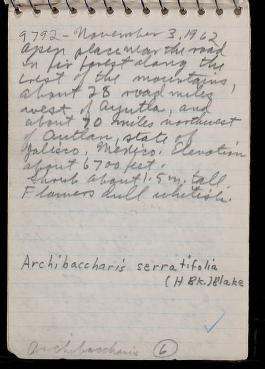 9792 - November 3, 1962
Open place near the road
in fir forest along the
crest of the mountains,
about 28 road miles
west of Ayutla, and
about 20 miles northwest
of Autlan, state of
Jalisco, Mexico. Elevation
about 6700 feet.
Shrub about 1.5 m. tall
Flowers dull whitish.
Archibaccharis serratifolia
(HBK.) Blake
Archibaccharis 6